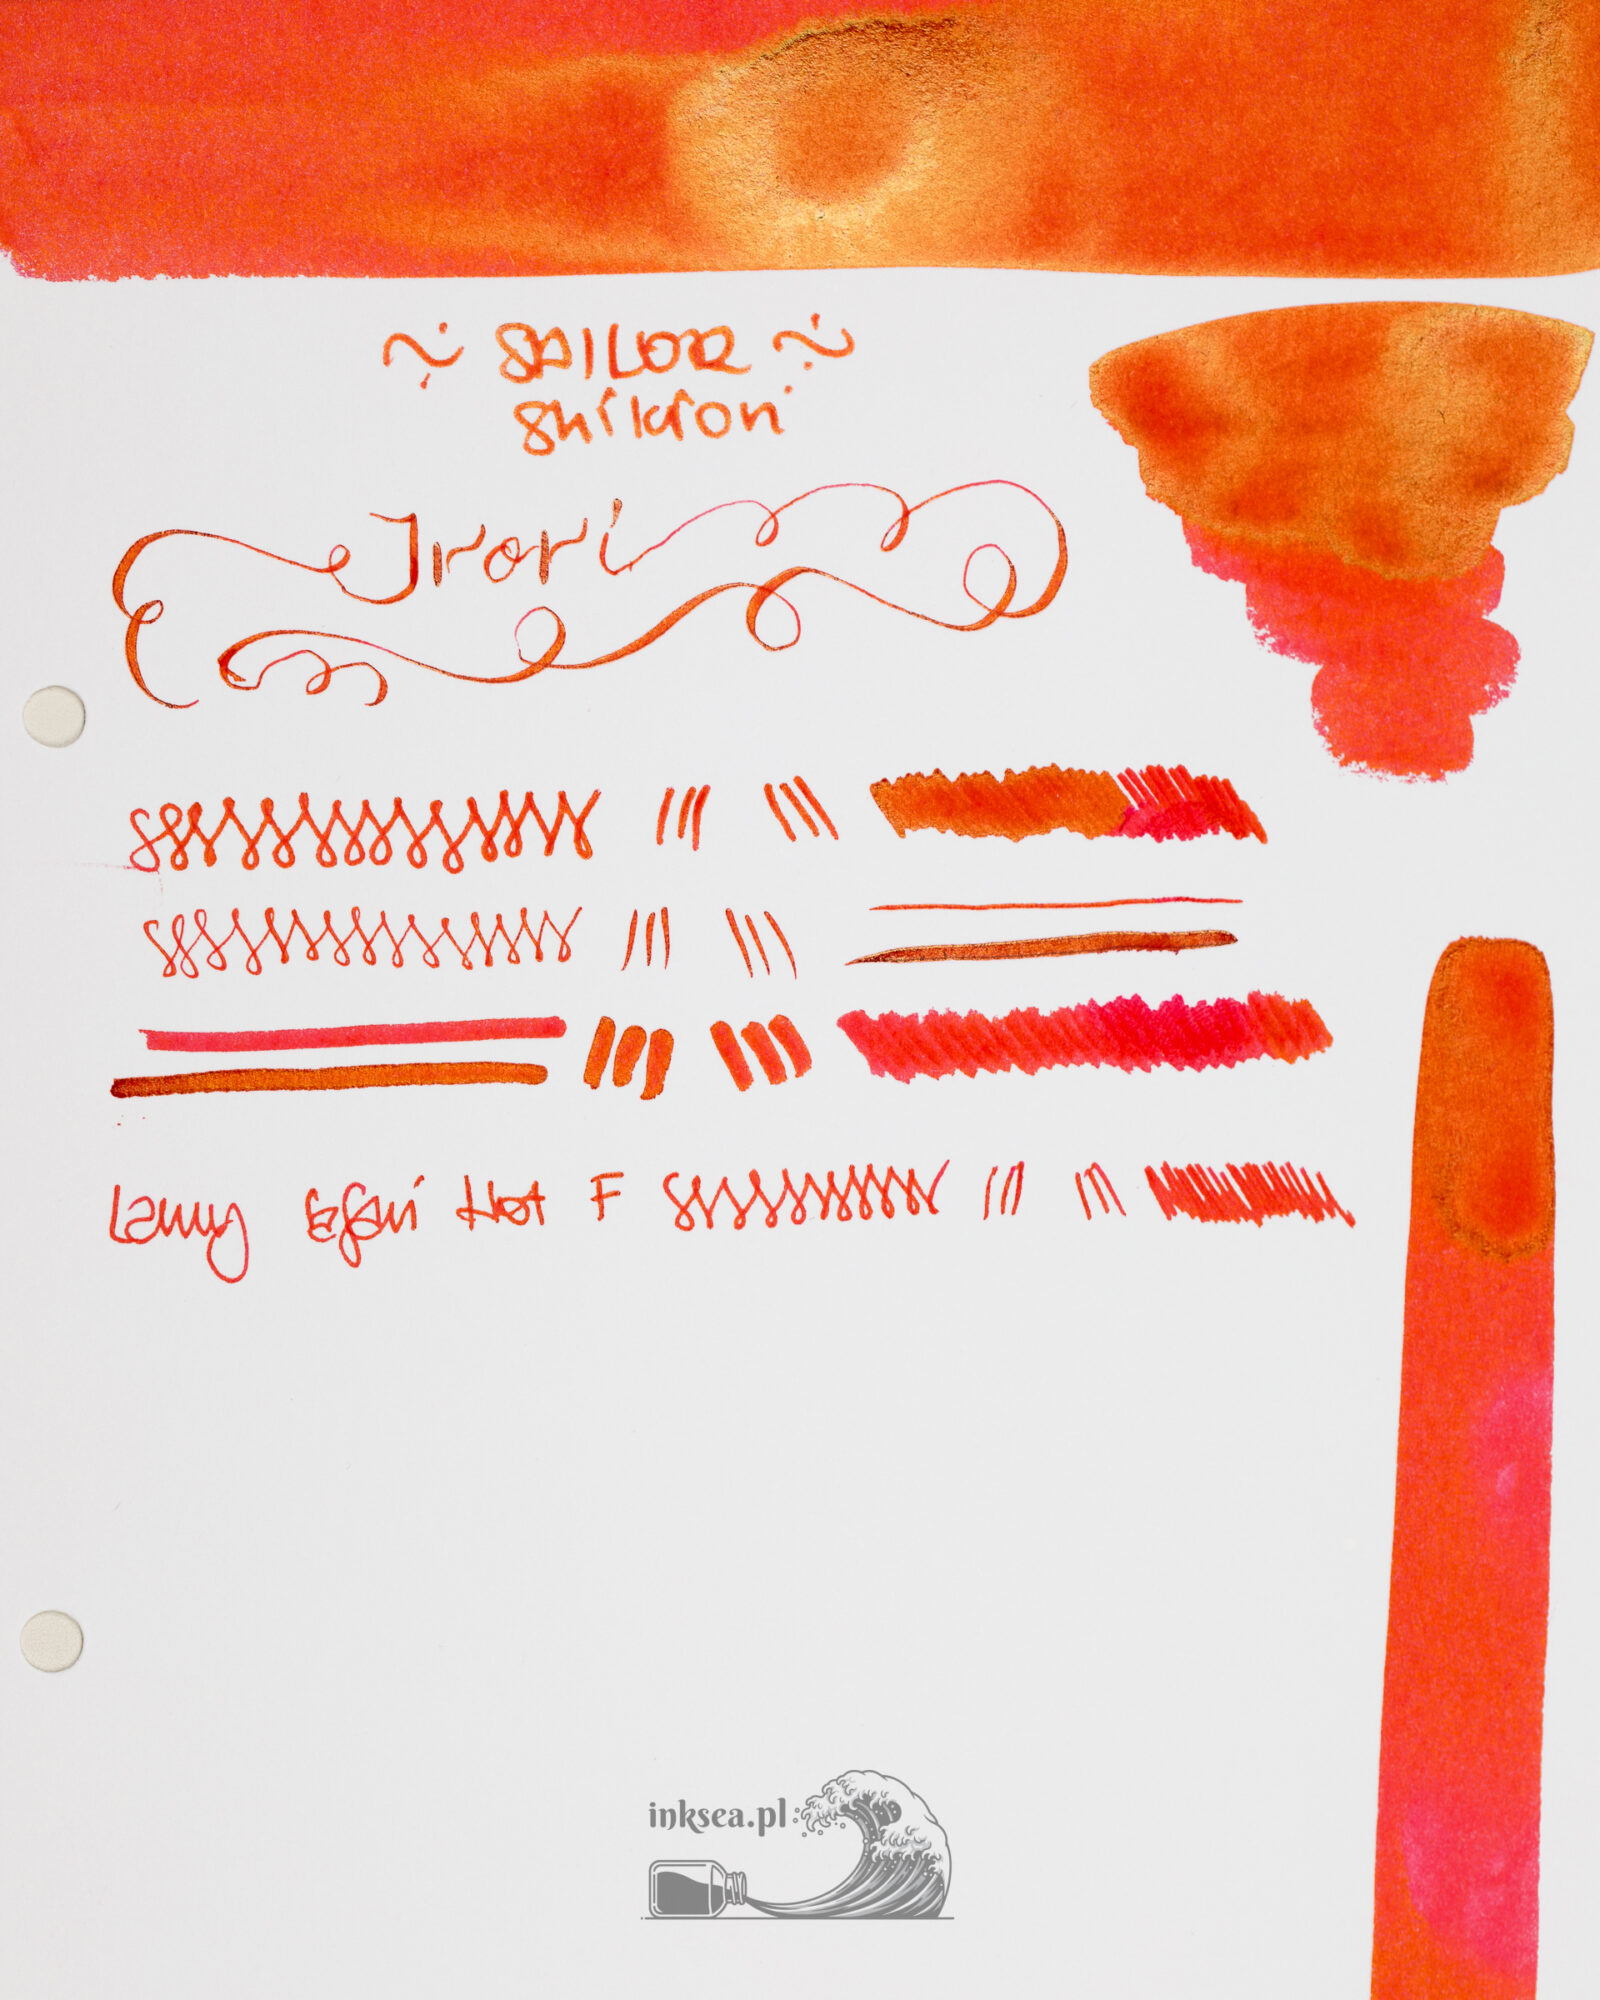 ~ SAILOR ~
Shikiori
Irori
Lamy Safari Hot F
inksea.pl